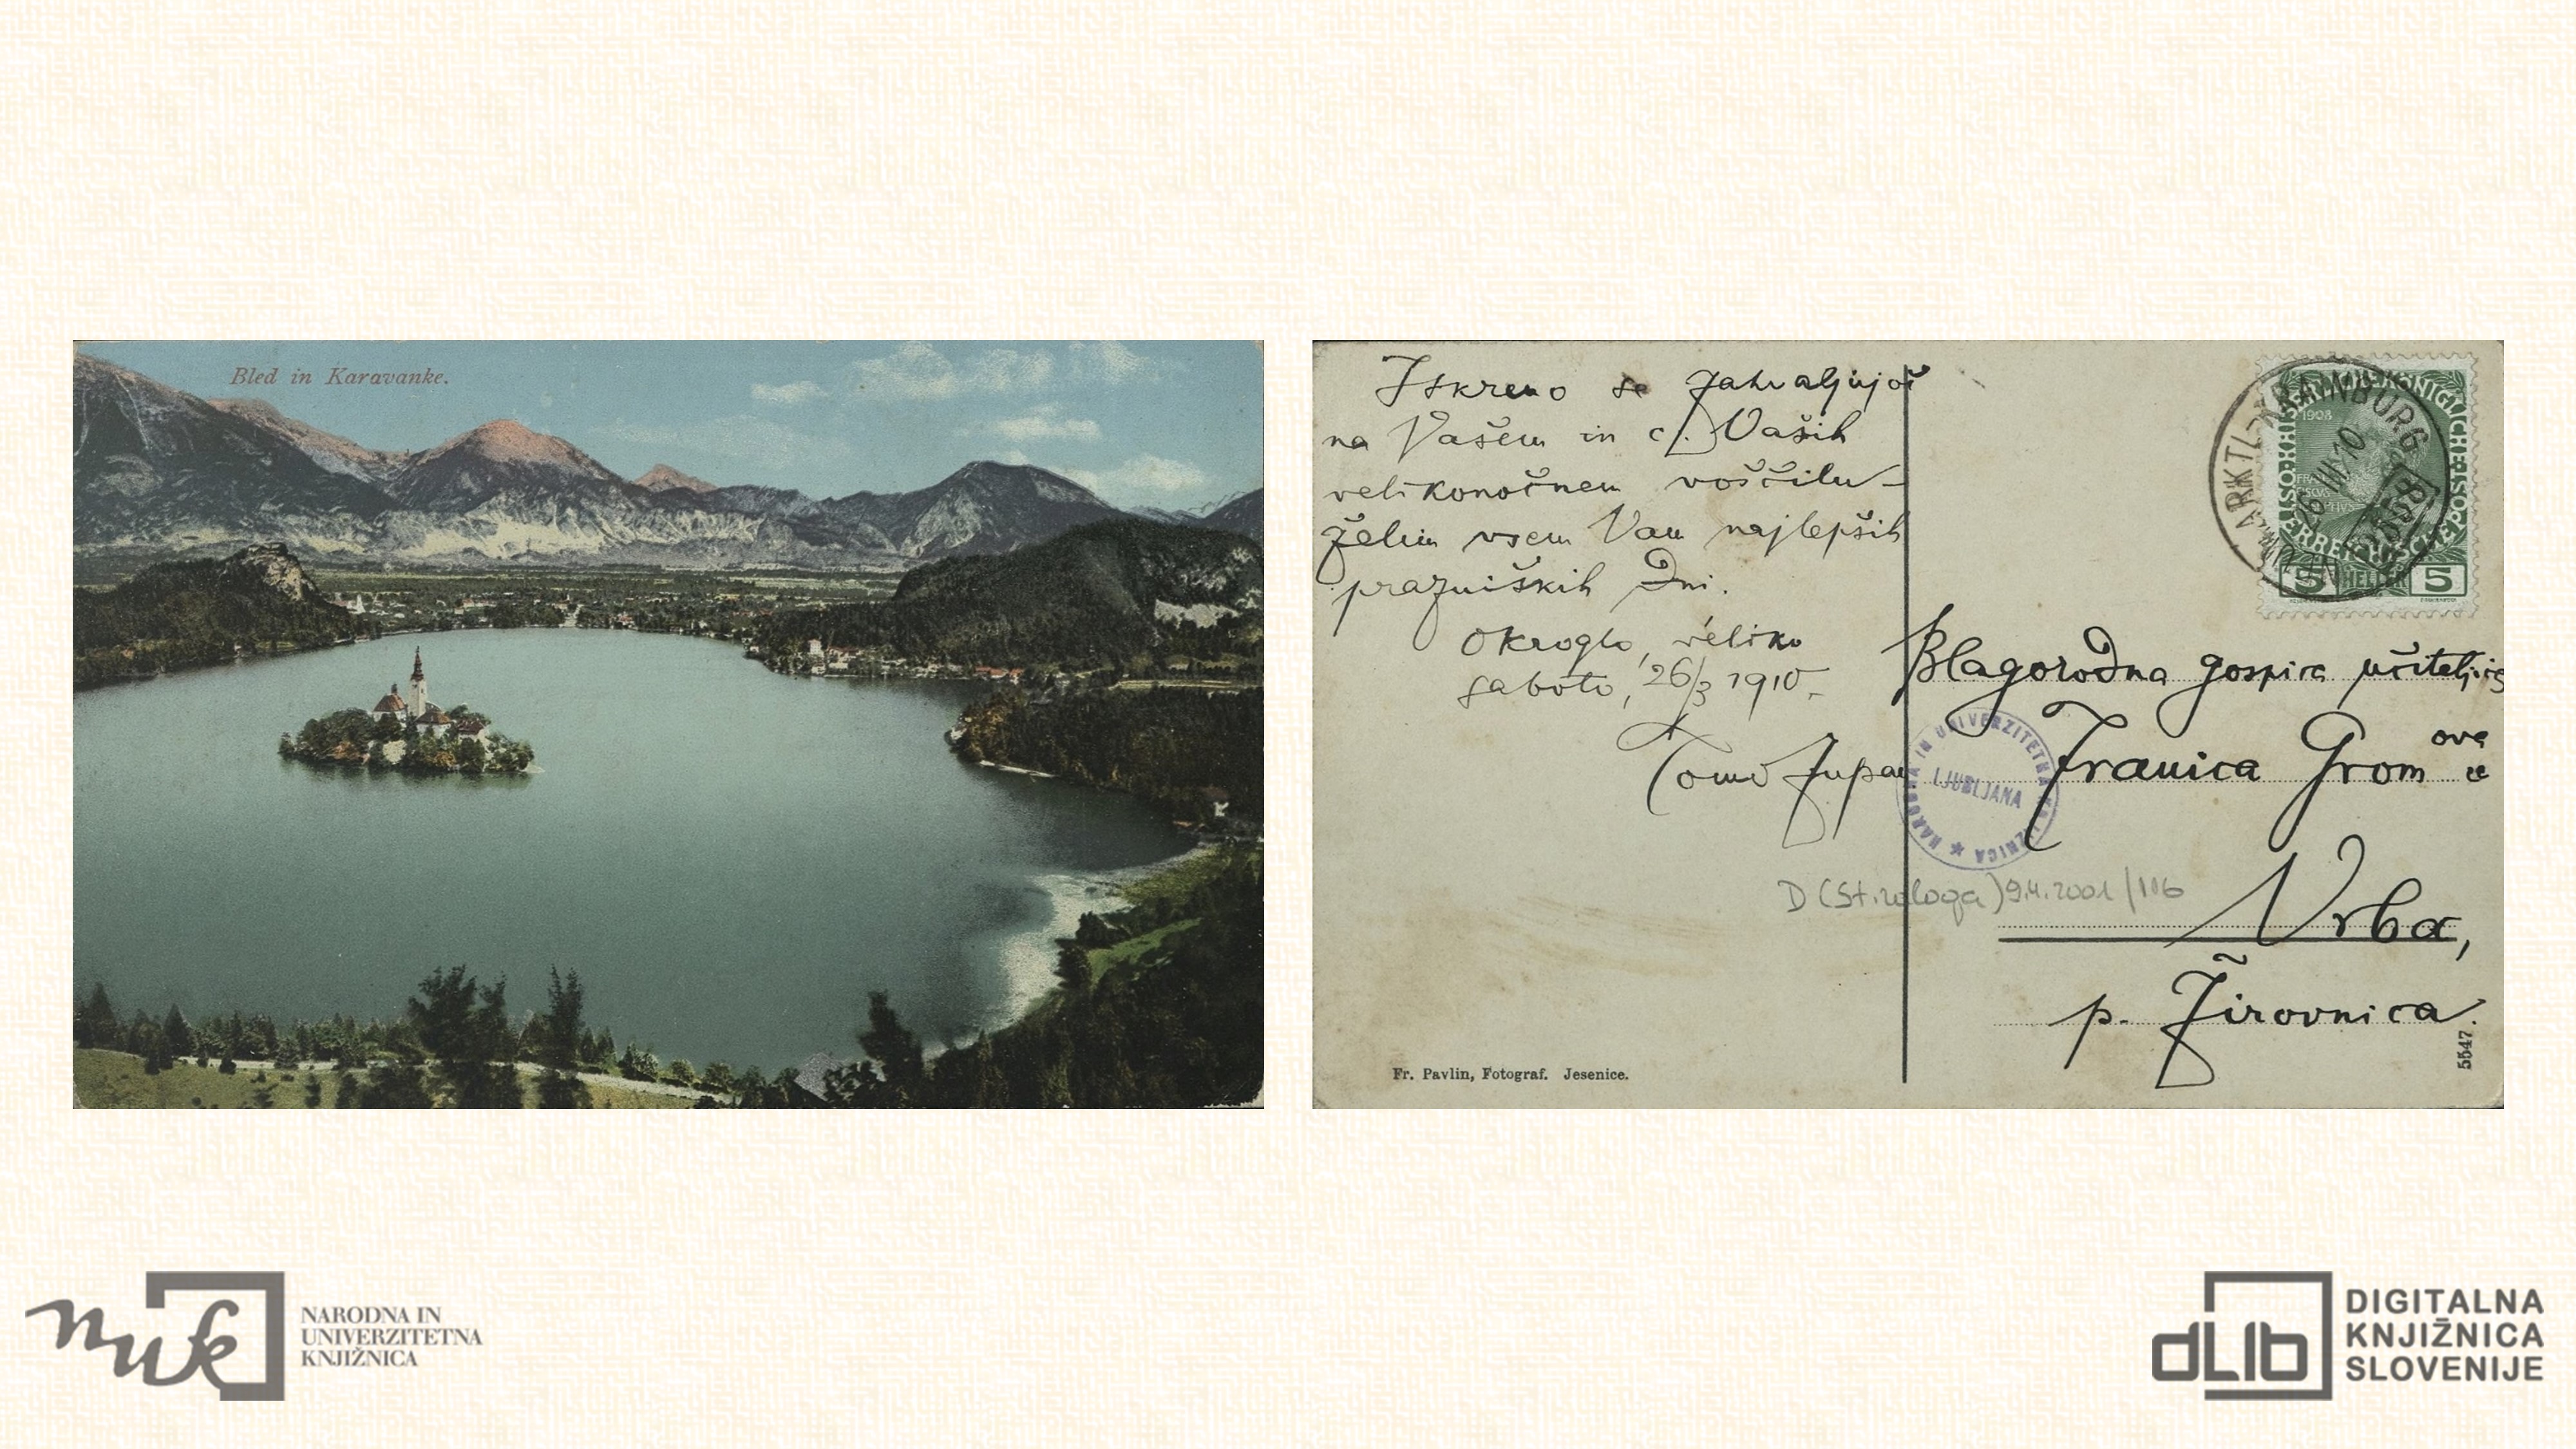 Bled in Karavanke.
Iskreno se zahvaljujoč
na Vašem in cj. Vaših
velikonočnem voščilu –
želim vsem Vam najlepših
prazniških dni.
Okroglo, veliko
saboto, 26/3 1910.
Tomo Zupan
Fr. Pavlin, Fotograf. Jesenice.
KRAINBURG
26 III 10
1908
5 HELLER 5
Blagorodna gospica učiteljica
Franica Grom ova
Vrba,
p. Žirovnica.
5547.
NARODNA IN UNIVERZITETNA KNJIŽNICA
LJUBLJANA
D (St. zaloga) 9.4.2001/116
nuk
NARODNA IN
UNIVERZITETNA
KNJIŽNICA
dLib
DIGITALNA
KNJIŽNICA
SLOVENIJE